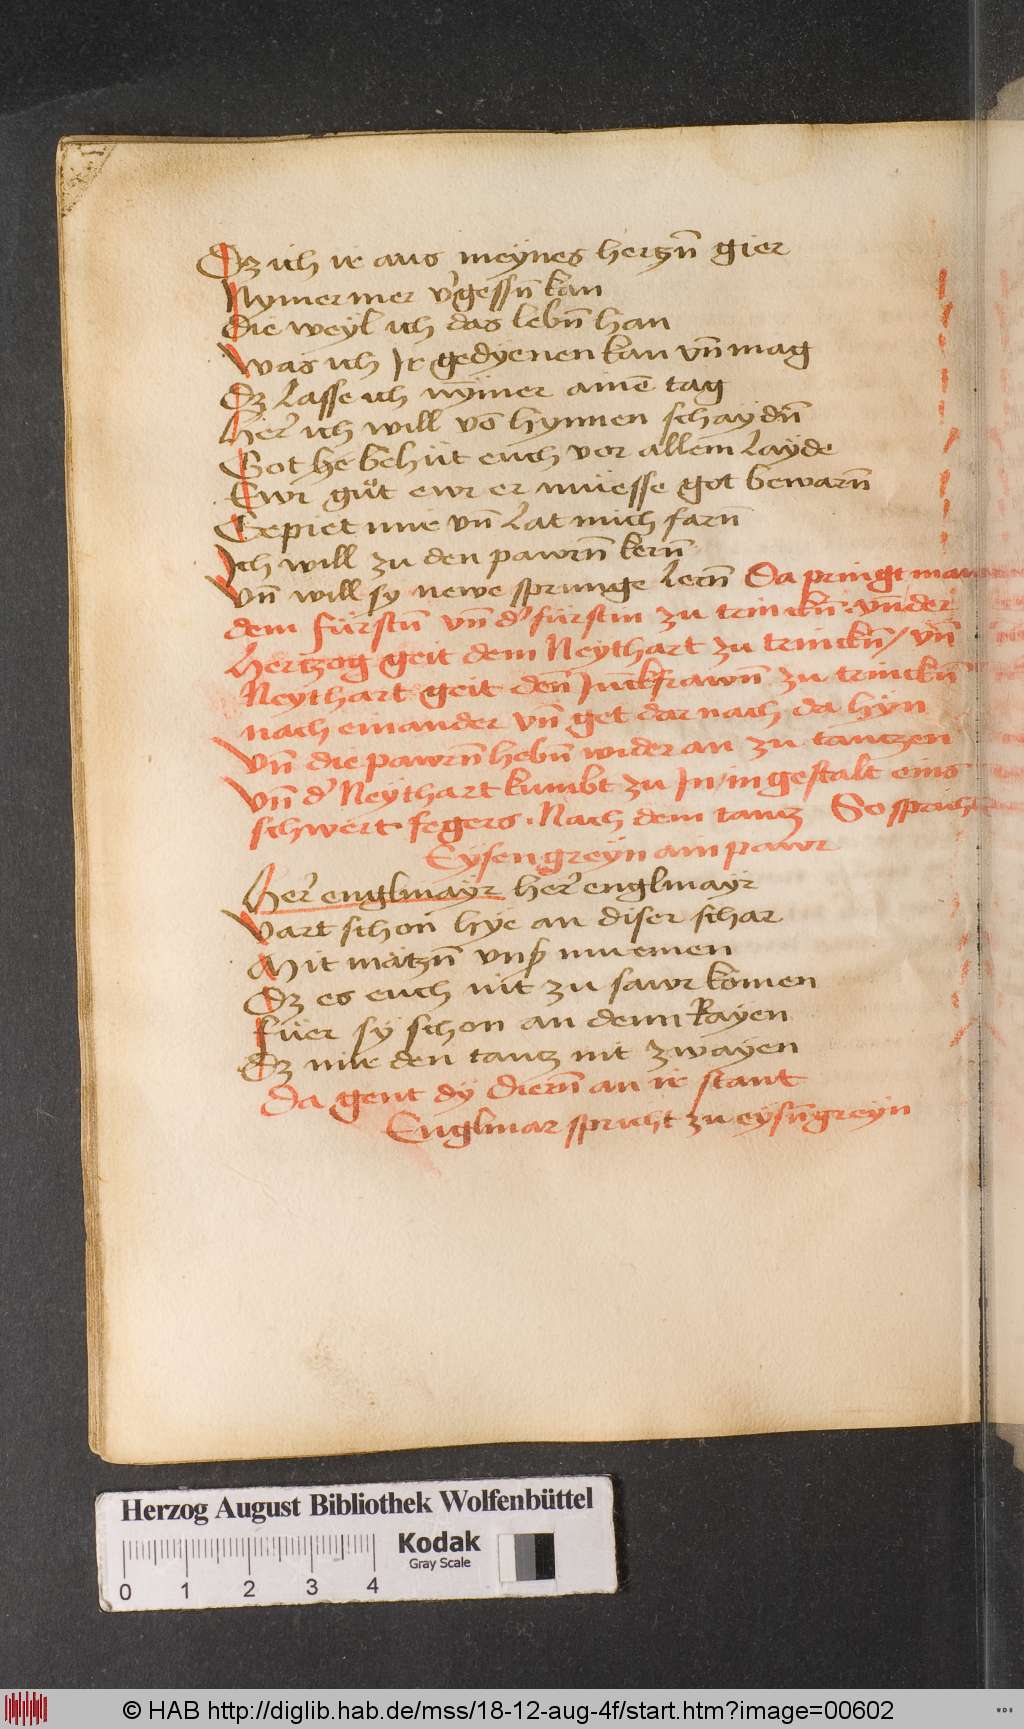 Dz ich ir aus meynes hertzn̄ gier
Nymermer v̓gessn̄ kan
die weyl ich das lebn̄ han
was ich Ir gedyenen kan vn̄ mag
Dz Lasse ich nȳmer ainē tag
Her̓ ich will vō hynnen schaydn̄
Got he behüt euch vor allem Layde
Ewr güt ewr er müesse got bewarn̄
Gepiet mir vn̄ Lat mich farn̄
Ich will zu den pawrn̄ kern̄
Vn̄ will sy newe sprunge Lern̄ Da pringt man
dem fürstn̄ vn̄ d̓ fürstin zu trinckn̄. vn̄ der
Hertzog geit dem Neythart zu trinckn̄/ vn̄
Neythart geit den̄ Junckfrawn̄ zu trinckn̄
nach einander vn̄ get dar nach da hyn
Vn̄ die pawrn̄ hebn̄ wider an zu tanczen
Vn̄ d̓ Neythart kumbt zu In/ in gestalt eins
schwert fegers. Nach dem tancz So spricht
Eysengreyn ain pawr
Her̓ englmayr her̓ englmayr
Vart schon hye an diser schar
Mit mätzn̄ vnß muemen
Dz es euch nit zu sawr komen
Füer sy schon an denn Rayen
Dz mir den tancz nit zwayen
Da gent dy diern̄ an ir stant
Englmar spricht zu eysn̄greyn
Herzog August Bibliothek Wolfenbüttel
Kodak
Gray Scale
0 1 2 3 4
© HAB http://diglib.hab.de/mss/18-12-aug-4f/start.htm?image=00602